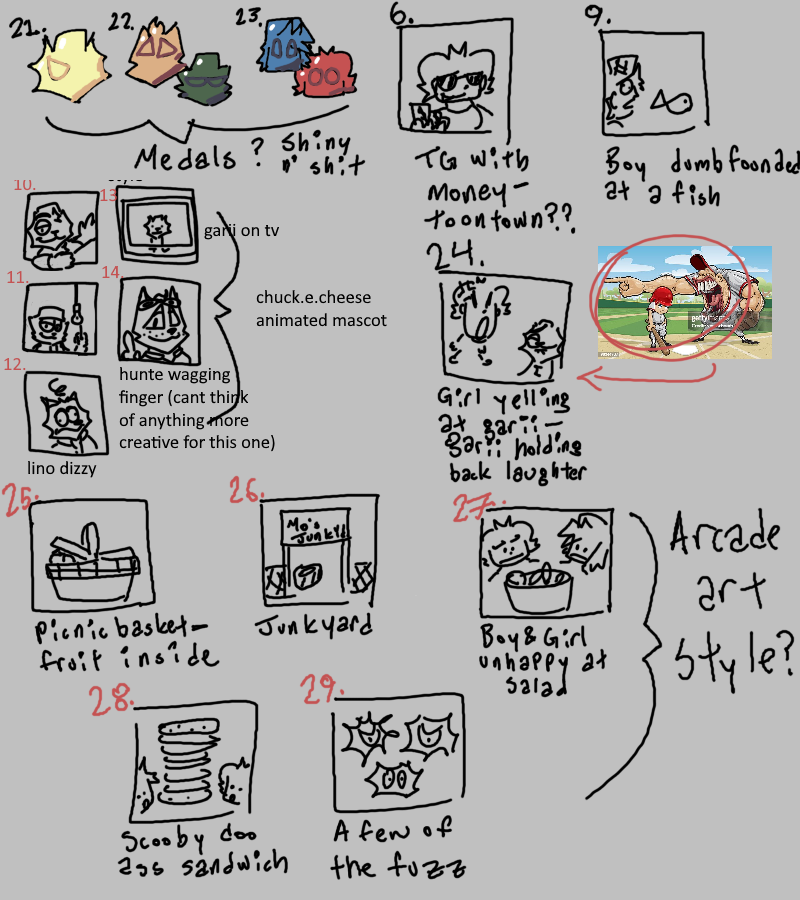 21.
22.
23.
Medals? Shiny
n' shit
6.
TG with
money -
toontown??
9.
Boy dumbfounded
at a fish
10.
13
garii on tv
11.
14.
chuck.e.cheese
animated mascot
12.
hunte wagging
finger (cant think
of anything more
creative for this one)
lino dizzy
24.
Girl yelling
at garii -
garii holding
back laughter
25.
picnic basket -
fruit inside
26.
Mo's
Junkyd
Junkyard
27.
Boy & Girl
unhappy at
salad
Arcade
art
style?
28.
Scooby doo
ass sandwich
29.
A few of
the fuzz